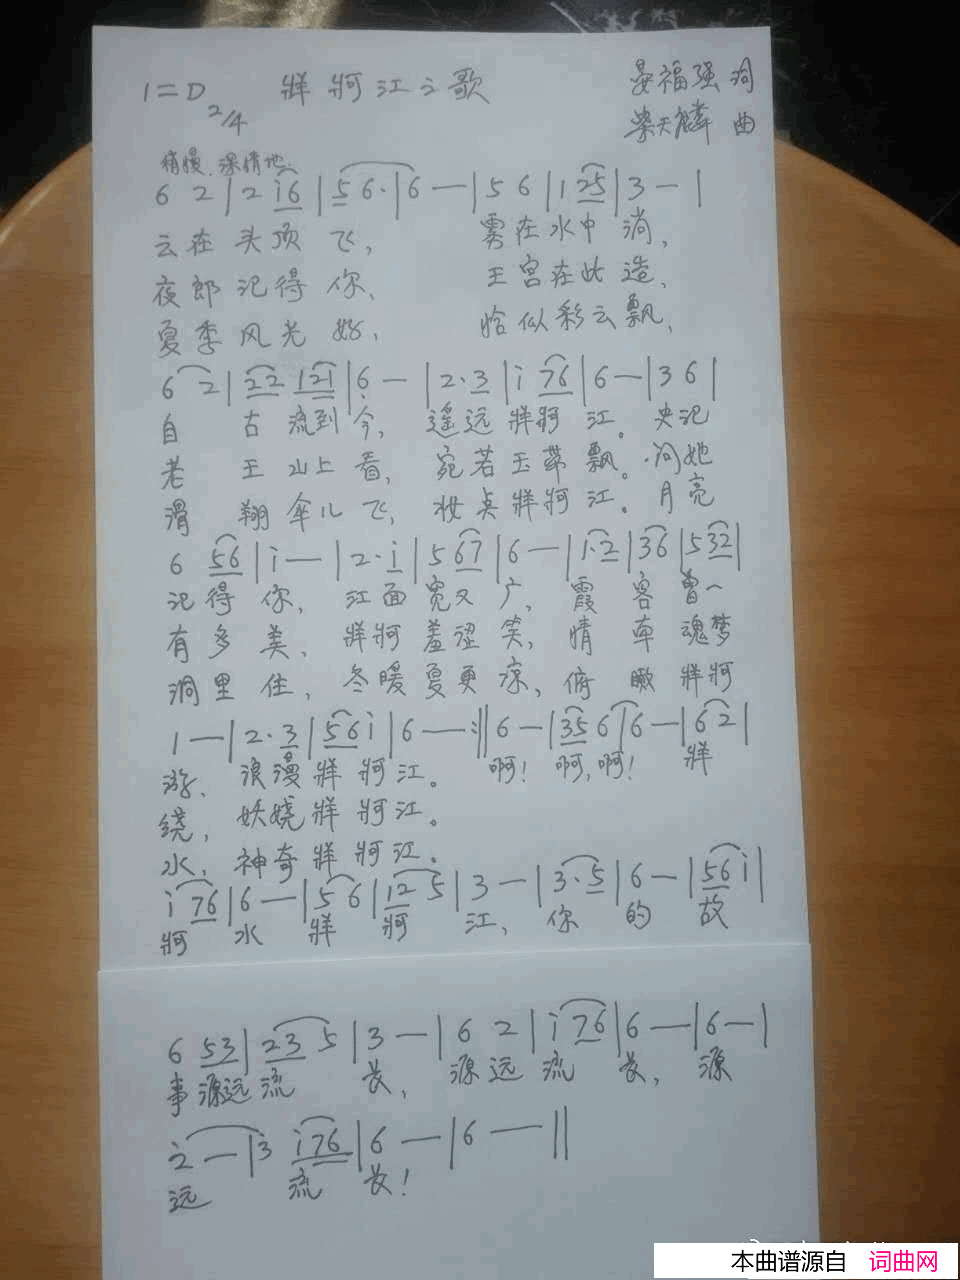 1=D 2/4 牂牁江之歌 晏福强 词
柴天麟 曲
稍慢、深情地
6 2 | 2 i6 | 5 6· | 6 — | 5 6 | 1 25 | 3 — |
云在头顶飞, 雾在水中淌,
夜郎记得你, 王宫在此造,
夏季风光好, 恰似彩云飘,
6 2 | 22 121 | 6 — | 2·3 | i 76 | 6 — | 3 6 |
自古流到今, 遥远牂牁江。史记
老王山上看, 宛若玉带飘。问她
滑翔伞儿飞, 妆点牂牁江。月亮
6 56 | i — | 2·i | 5 67 | 6 — | 1·2 | 36 | 5 32 |
记得你, 江面宽又广, 霞客曾一
有多美, 牂牁羞涩笑, 情牵魂梦
洞里住, 冬暖夏更凉, 俯瞰牂牁
1 — | 2·3 | 56 i | 6 — :‖ 6 — | 35 6 | 6 — | 6 2 |
游, 浪漫牂牁江。 啊! 啊,啊! 牂
绕, 妖娆牂牁江。
水, 神奇牂牁江。
i 76 | 6 — | 5 6 | 12 5 | 3 — | 3·5 | 6 — | 56 i |
牁水牂牁江, 你的故
6 53 | 23 5 | 3 — | 6 2 | i 76 | 6 — | 6 — |
事源远流长, 源远流长, 源
2 — | 3 i76 | 6 — | 6 — ‖
远流长!
本曲谱源自 词曲网